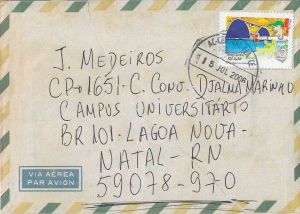 J. MEDEIROS
CP-1651-C. CONV. DJALMA MARINHO
CAMPUS UNIVERSITÁRIO
BR 101-LAGOA NOVA-
NATAL-RN
59078-970
15 JUL 2008
VIA AÉREA
PAR AVION